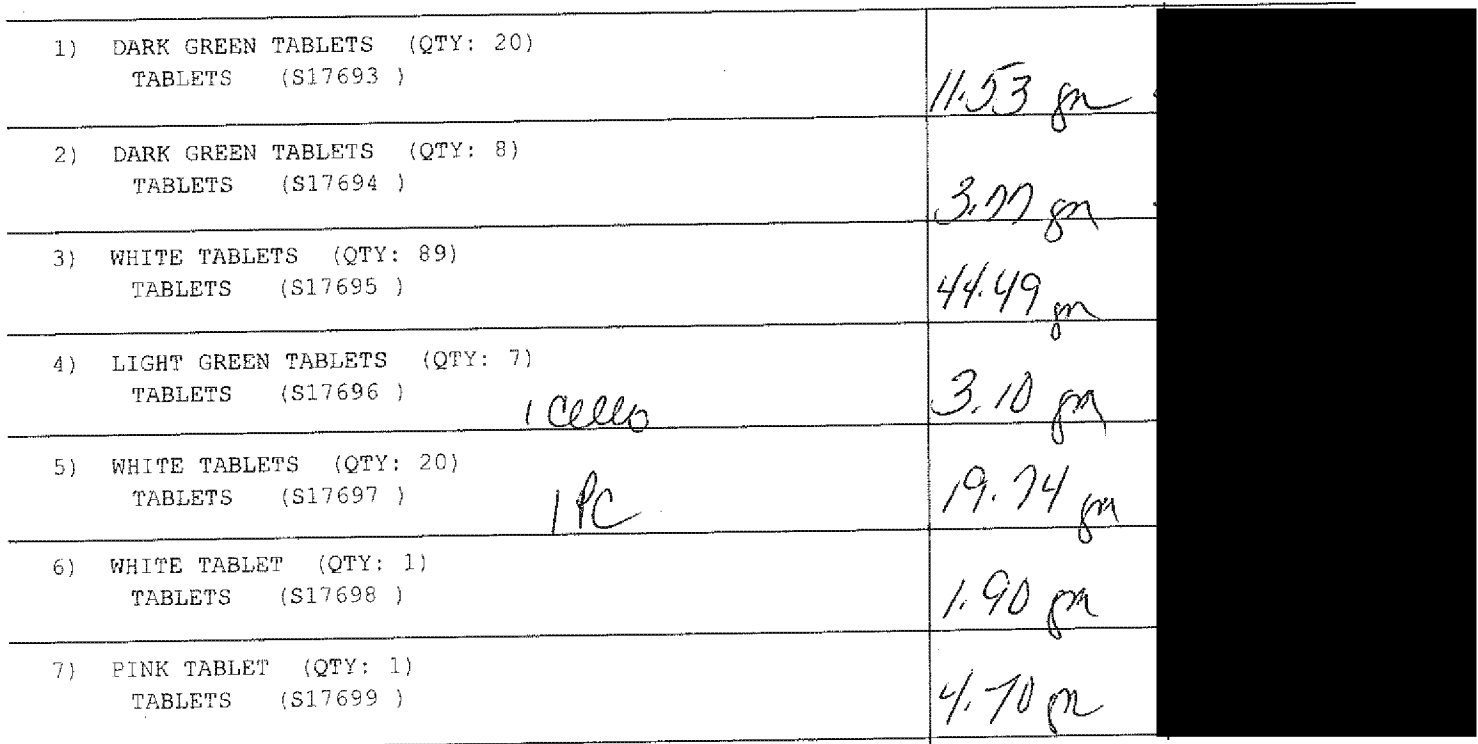 1) DARK GREEN TABLETS (QTY: 20)
TABLETS (S17693 )
11.53 gm
2) DARK GREEN TABLETS (QTY: 8)
TABLETS (S17694 )
3.77 gm
3) WHITE TABLETS (QTY: 89)
TABLETS (S17695 )
44.49 gm
4) LIGHT GREEN TABLETS (QTY: 7)
TABLETS (S17696 )
1 Cello
3.10 gm
5) WHITE TABLETS (QTY: 20)
TABLETS (S17697 )
1 PC
19.74 gm
6) WHITE TABLET (QTY: 1)
TABLETS (S17698 )
1.90 gm
7) PINK TABLET (QTY: 1)
TABLETS (S17699 )
4.70 gm